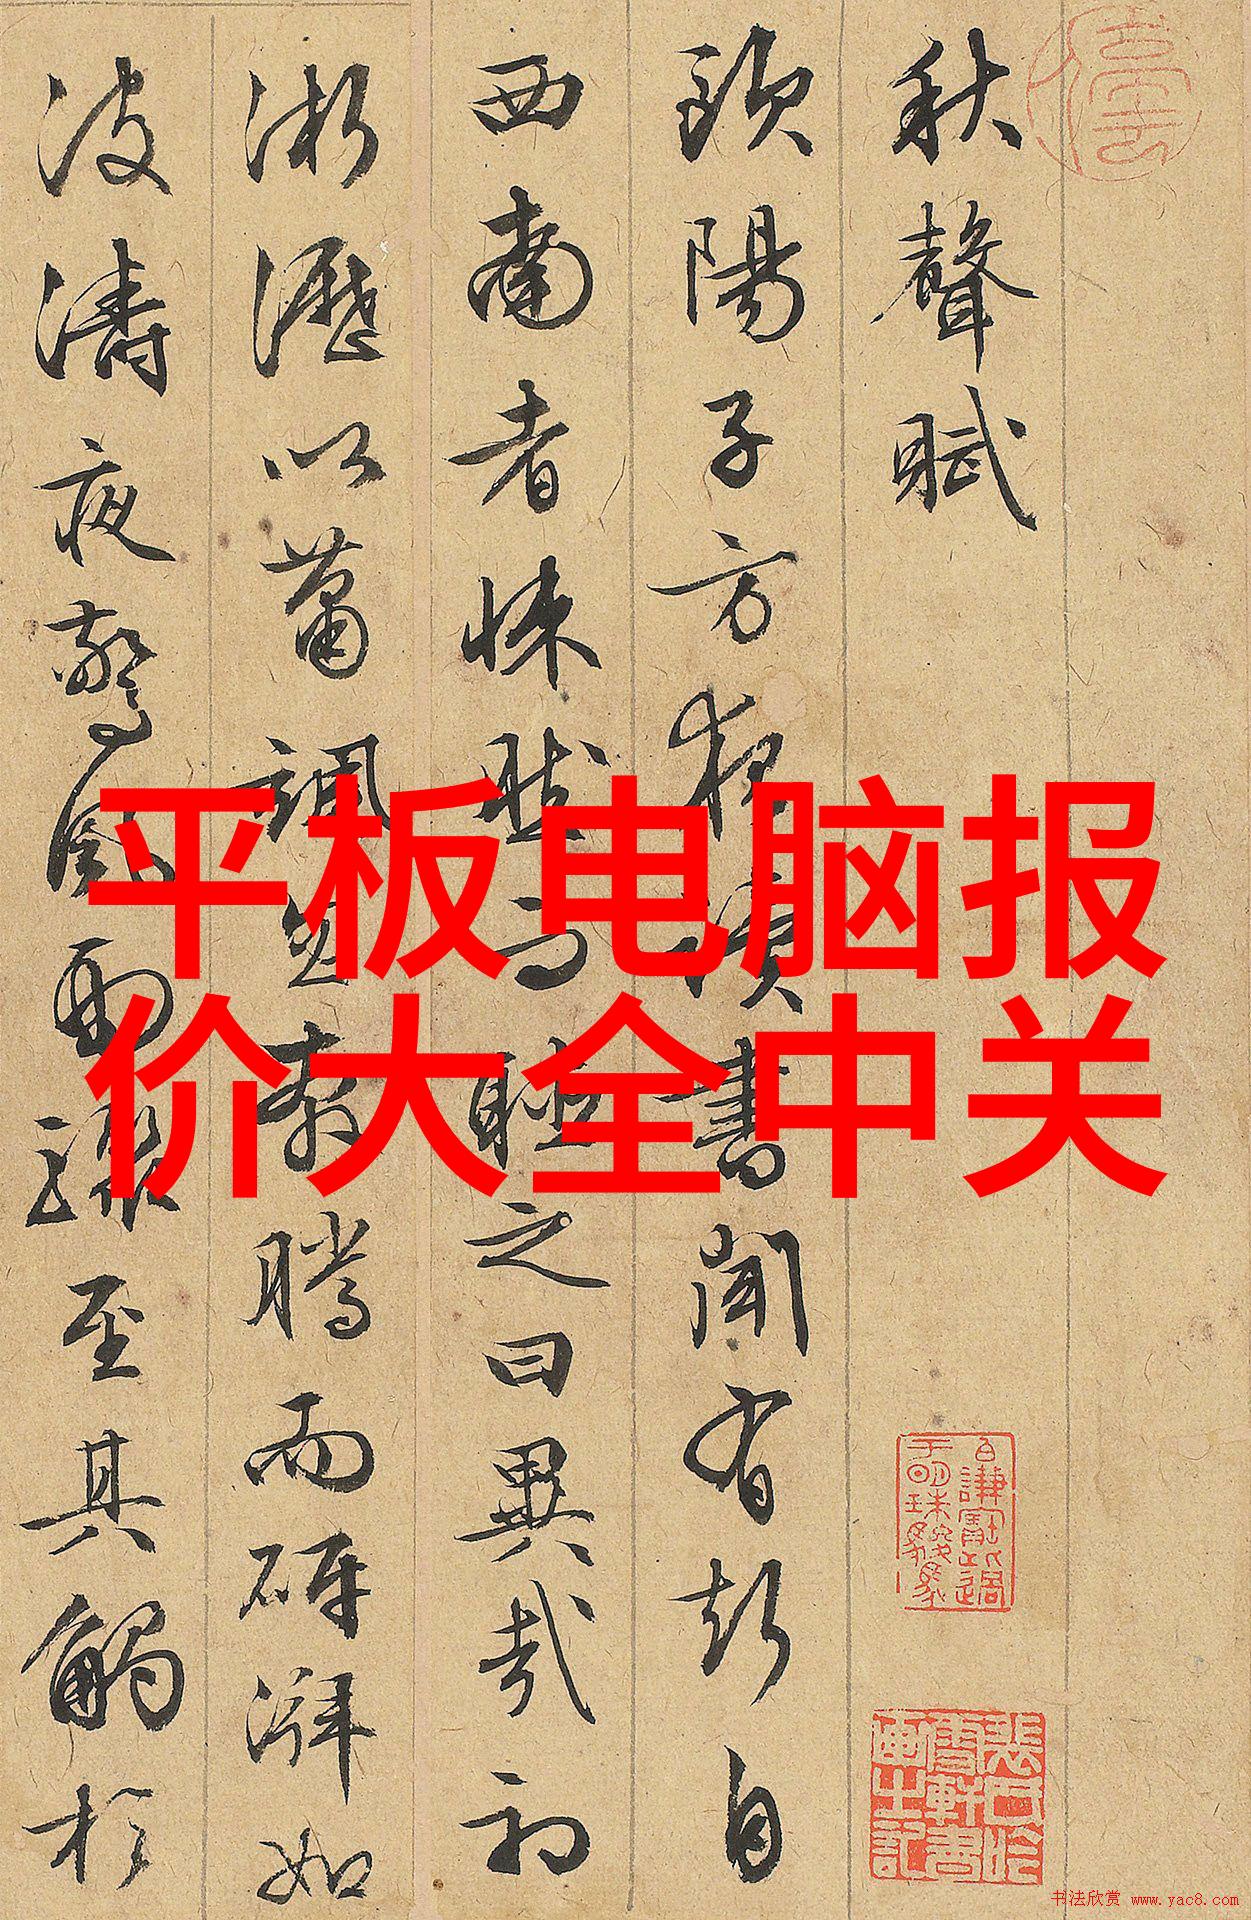 秋聲賦
歐陽子方夜讀書聞有聲自
西南者悚然而聽之曰異哉初
淅瀝以蕭颯忽奔騰而砰湃如
波濤夜驚風雨驟至其觸於
平板电脑报
价大全中关
书法欣赏 www.yac8.com